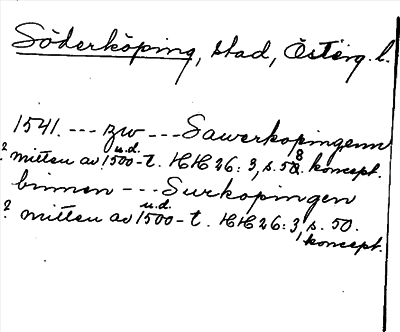 Söderköping, stad, Österg. l.
1541. --- zw --- Sawerkopingenn
? mitten av 1500-t. u.d. HH 26: 3, s. 58. koncept.
binnen --- Surkopingen
? mitten av 1500-t. u.d. HH 26: 3, s. 50.
koncept.